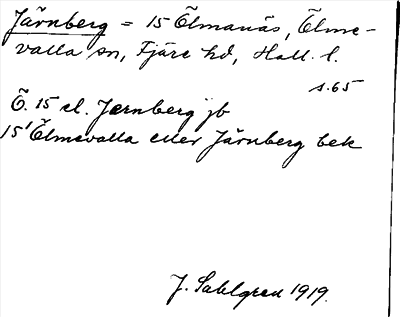 Järnberg = 15 Ölmanäs, Ölme-
valla sn, Fjäre hd, Hall. l.
s. 65
Ö. 15 el. Jernberg jb
15 Ölmevalla eller Järnberg bek
J. Sahlgren 1919.